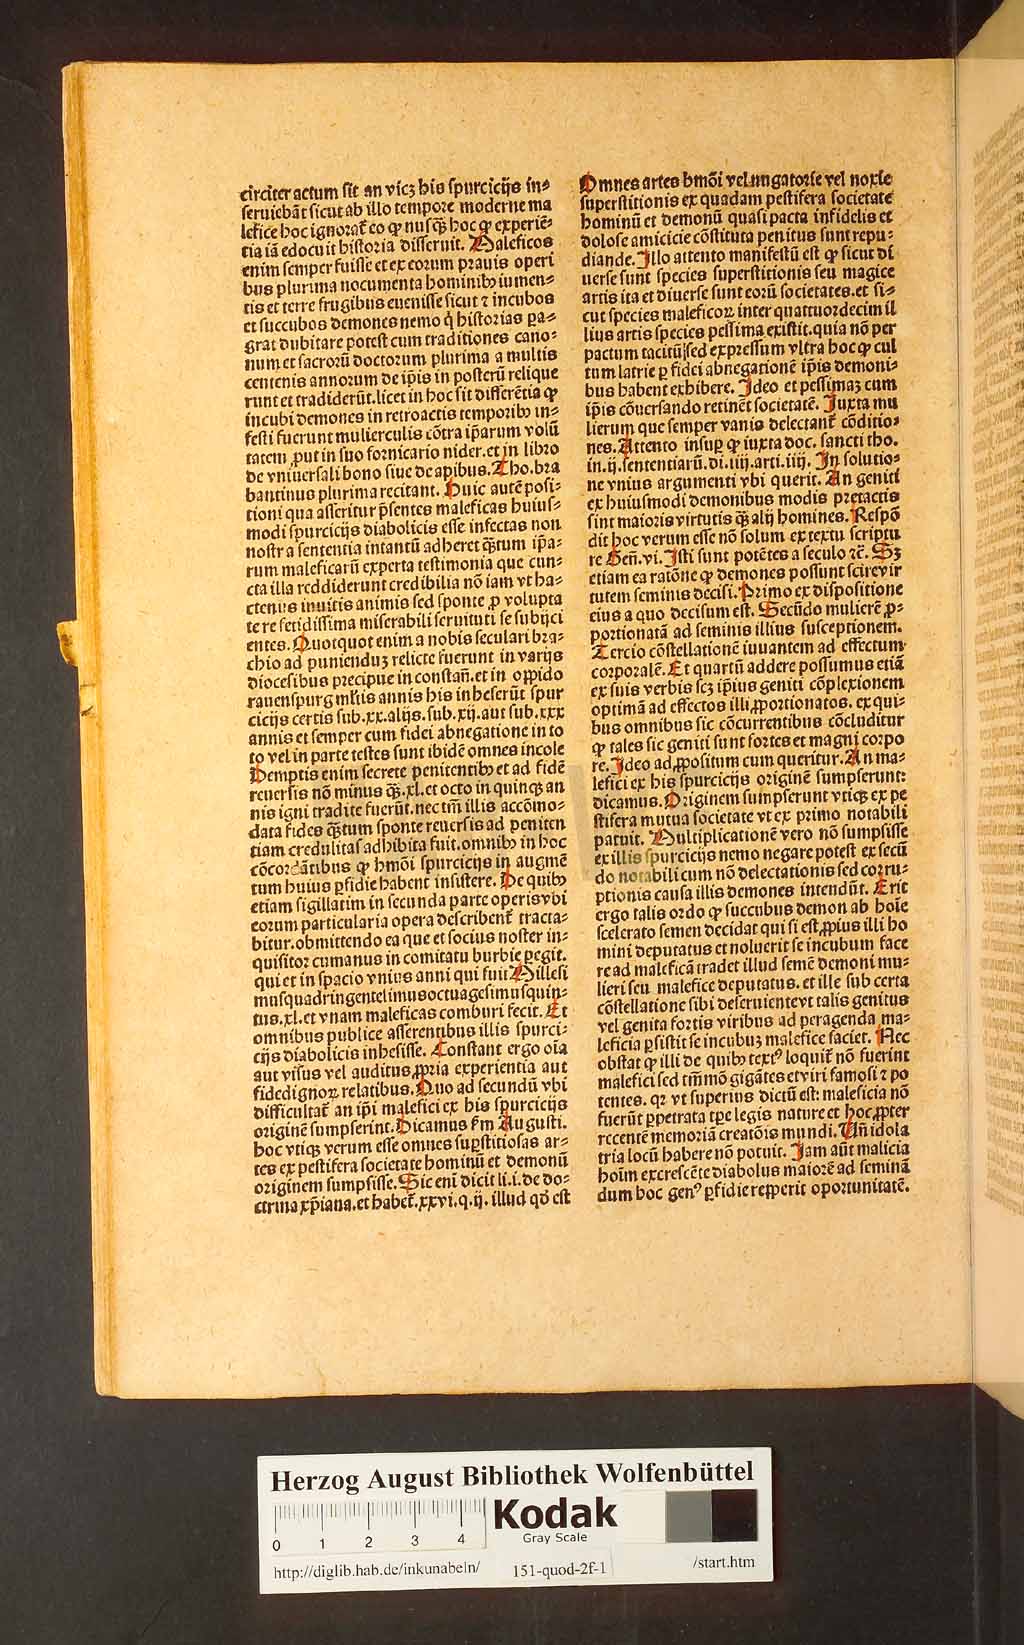 circiter actum sit an vicꝫ his spurcicijs in⸗
seruiebāt sicut ab illo tempore moderne ma
lefice hoc ignorat̄ eo ꝙ nusq̄ꝫ hoc ꝙ experiē⸗
tia iā edocuit historia disseruit. Maleficos
enim semper fuisse et ex eorum prauis operi
bus plurima nocumenta hominibꝰ iumen⸗
tis et terre frugibus euenisse sicut ⁊ incubos
et succubos demones nemo q̇ historias ꝑa⸗
grat dubitare potest cum traditiones cano⸗
num et sacrorū doctorum plurima a multis
centenis annorum de ip̄is in posterū relique
runt et tradiderūt. licet in hoc sit differētia ꝙ
incubi demones in retroactis temporibꝰ in⸗
festi fuerunt mulierculis cōtra ip̄arum volū
tatem ꝓut in suo fornicario nider. et in libro
de vniuersali bono siue de apibus. Tho. bra
bantinus plurima recitant. Huic autē posi⸗
tioni qua asseritur p̄sentes maleficas huius⸗
modi spurcicijs diabolicis esse infectas non
nostra sententia intantū adheret q̄ꝫtum ip̄a⸗
rum maleficarū experta testimonia que cun⸗
cta illa reddiderunt credibilia nō iam vt ha⸗
ctenus inuitis animis sed sponte ꝓ volupta
te re fetidissima miserabili seruituti se subijci
entes. Quotquot enim a nobis seculari bra⸗
chio ad punienduꝫ relicte fuerunt in varijs
diocesibus precipue in constan̄. et in oppido
rauenspurg ml̄tis annis his inheserūt spur
cicijs certis sub. xx. alijs. sub. xij. aut sub. xxx
annis et semper cum fidei abnegatione in to
to vel in parte testes sunt ibidē omnes incole
Demptis enim secrete penitentibꝰ et ad fidē
reuersis nō minus q̄ꝫ. xl. et octo in quinqꝫ an
nis igni tradite fuerūt. nec tm̄ illis accōmo⸗
data fides q̄ꝫtum sponte reuersis ad peniten
tiam credulitas adhibita fuit. omnibꝰ in hoc
cōcordātibus ꝙ hm̄oi spurcicijs in augmē
tum huius ꝑfidie habent insistere. De quibꝰ
etiam sigillatim in secunda parte operis vbi
eorum particularia opera describent̄ tracta⸗
bitur. obmittendo ea que et socius noster in⸗
quisitor cumanus in comitatu burbie ꝑegit.
qui et in spacio vnius anni qui fuit Millesi
musquadringentesimusoctuagesimusquin⸗
tus. xl. et vnam maleficas comburi fecit. Et
omnibus publice asserentibus illis spurci⸗
cijs diabolicis inhesisse. Constant ergo oīa
aut visus vel auditus ꝓpria experientia aut
fidedignoꝝ relatibus. Quo ad secundū vbi
difficultat̄ an ip̄i malefici ex his spurcicijs
originē sumpserint. Dicamus ẜm Augusti.
hoc vtiqꝫ verum esse omnes suꝑstitiosas ar⸗
tes ex pestifera societate hominū et demonū
originem sumpsisse. Sic eni dicit li. i. de do⸗
ctrina xp̄iana. et habet̄. xxvi. q. ij. illud qd̄ est
Omnes artes hm̄oi vel nugatorie vel noxie
superstitionis ex quadam pestifera societate
hominū et demonū quasi pacta infidelis et
dolose amicicie cōstituta penitus sunt repu⸗
diande. Illo attento manifestū est ꝙ sicut di
uerse sunt species superstitionis seu magice
artis ita et diuerse sunt eorū societates. et si⸗
cut species maleficoꝝ inter quattuordecim il
lius artis species pessima existit. quia nō per
pactum tacitū sed expressum vltra hoc ꝙ cul
tum latrie ꝑ fidei abnegationē ip̄is demoni⸗
bus habent exhibere. Ideo et pessimaꝫ cum
ip̄is cōuersando retinēt societatē. Iuxta mu
lierum que semper vanis delectant̄ cōditio⸗
nes. Attento insuꝑ ꝙ iuxta doc. sancti tho.
in. ij. sententiarū. di. iiij. arti. iiij. In solutio⸗
ne vnius argumenti vbi querit. An geniti
ex huiusmodi demonibus modis pretactis
sint maioris virtutis q̄ꝫ alij homines. Respō
dit hoc verum esse nō solum ex textu scriptu
re Gen̄. vi. Isti sunt potētes a seculo ⁊c̄. Sꝫ
etiam ea ratōne ꝙ demones possunt scire vir
tutem seminis decisi. Primo ex dispositione
eius a quo decisum est. Secūdo mulierē ꝓ⸗
portionatā ad seminis illius susceptionem.
Tercio cōstellationē iuuantem ad effectum
corporalē. Et quartū addere possumus etiā
ex suis verbis scꝫ ip̄ius geniti cōplexionem
optimā ad effectos illi ꝓportionatos. ex qui⸗
bus omnibus sic cōcurrentibus cōcluditur
ꝙ tales sic geniti sunt fortes et magni corpo
re. Ideo ad ꝓpositum cum queritur. An ma⸗
lefici ex his spurcicijs originē sumpserunt:
dicamus. Originem sumpserunt vtiqꝫ ex pe
stifera mutua societate vt ex primo notabili
patuit. Multiplicationē vero nō sumpsisse
ex illis spurcicijs nemo negare potest ex secū
do notabili cum nō delectationis sed corru⸗
ptionis causa illis demones intendūt. Erit
ergo talis ordo ꝙ succubus demon ab hoīe
scelerato semen decidat qui si est ꝓpius illi ho
mini deputatus et noluerit se incubum face
re ad maleficā tradet illud semē demoni mu⸗
lieri seu malefice deputatus. et ille sub certa
cōstellatione sibi deseruiente vt talis genitus
vel genita fortis viribus ad peragenda ma⸗
leficia ꝑsistit se incubuꝫ malefice faciet. Nec
obstat ꝙ illi de quibꝰ textꝰ loquit̄ nō fuerint
malefici sed tm̄mō gigātes et viri famosi ⁊ po
tentes. qꝛ vt superius dictū est: maleficia nō
fuerūt ꝑpetrata tꝑe legis nature et hoc ꝓpter
recentē memoriā creatōis mundi. Vn̄ idola
tria locū habere nō potuit. Iam aūt malicia
hoīm excrescēte diabolus maiorē ad seminā
dum hoc genꝰ ꝑfidie reꝑperit oportunitatē.
Herzog August Bibliothek Wolfenbüttel
0 1 2 3 4
Kodak
Gray Scale
http://diglib.hab.de/inkunabeln/ 151-quod-2f-1 /start.htm